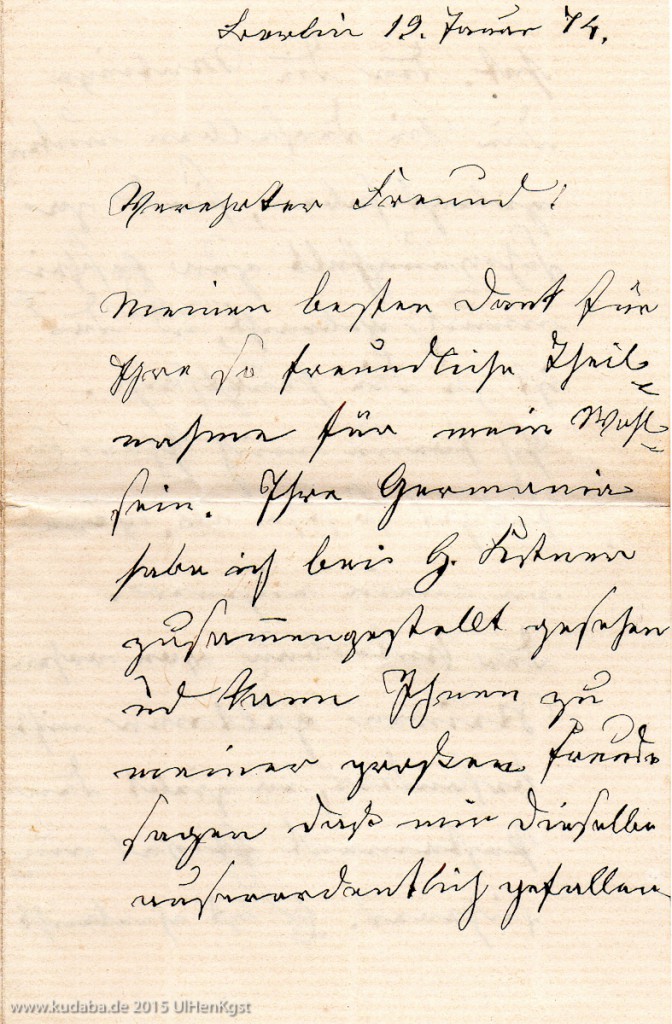 Berlin 19. Januar 74.
Verehrter Freund!
Meinen besten Dank für
Ihre so freundliche Theil=
nahme für mein Wohl=
sein. Ihre Germania
habe ich bei H. Kestner
zusam̅engestellt gesehen
ud kann Ihnen zu
meiner großen Freude
sagen daß mir dieselbe
auserordentlich gefallen
www.kudaba.de 2015 UlHenKgst